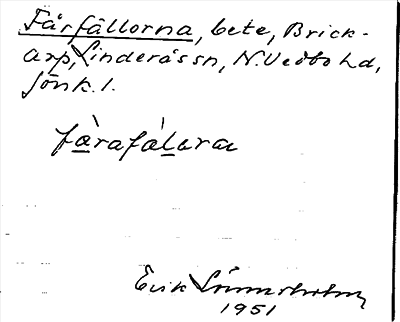 Fårfållorna, bete, Brick-
arp, Linderås sn, N. Vedbo hd,
Jönk. l.
fàrafálara
Erik
1951